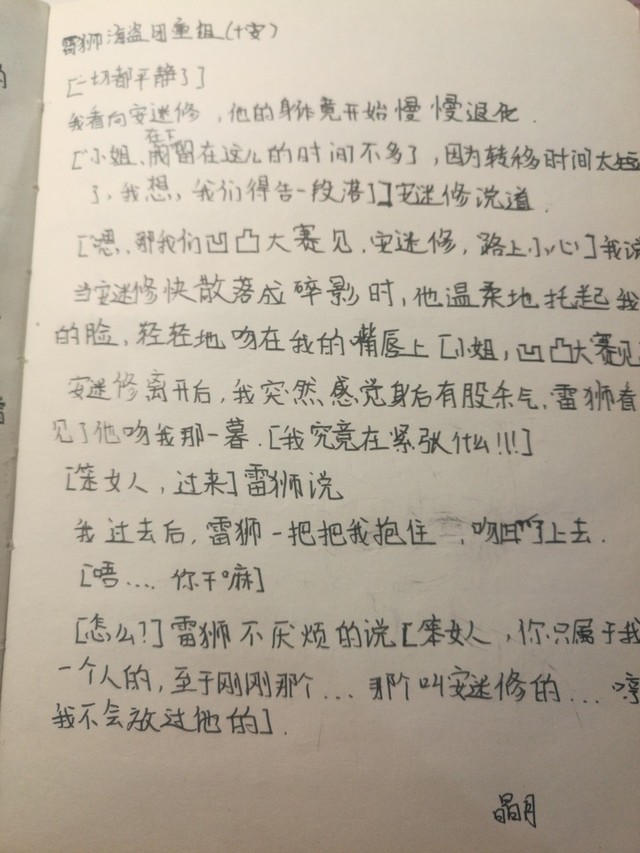 雷狮海盗团重组(十安)
[一切都平静了]
我看向安迷修，他的身体竟开始慢慢退化.
[小姐、在下留在这儿的时间不多了，因为转移时间太短
了，我想，我们得告一段落了]安迷修说道.
[嗯，那我们凹凸大赛见，安迷修，路上小心]我说
当安迷修快散落成碎影时，他温柔地托起我
的脸，轻轻地吻在我的嘴唇上[小姐，凹凸大赛见]
安迷修离开后，我突然感觉身后有股杀气，雷狮看
见了他吻我那一暮.[我究竟在紧张什么!!!]
[笨女人，过来]雷狮说
我过去后，雷狮一把把我抱住，吻了上去.
[唔.... 你干嘛]
[怎么?]雷狮不厌烦的说[笨女人，你只属于我
一个人的，至于刚刚那个... 那个叫安迷修的... 哼
我不会放过他的].
晶月